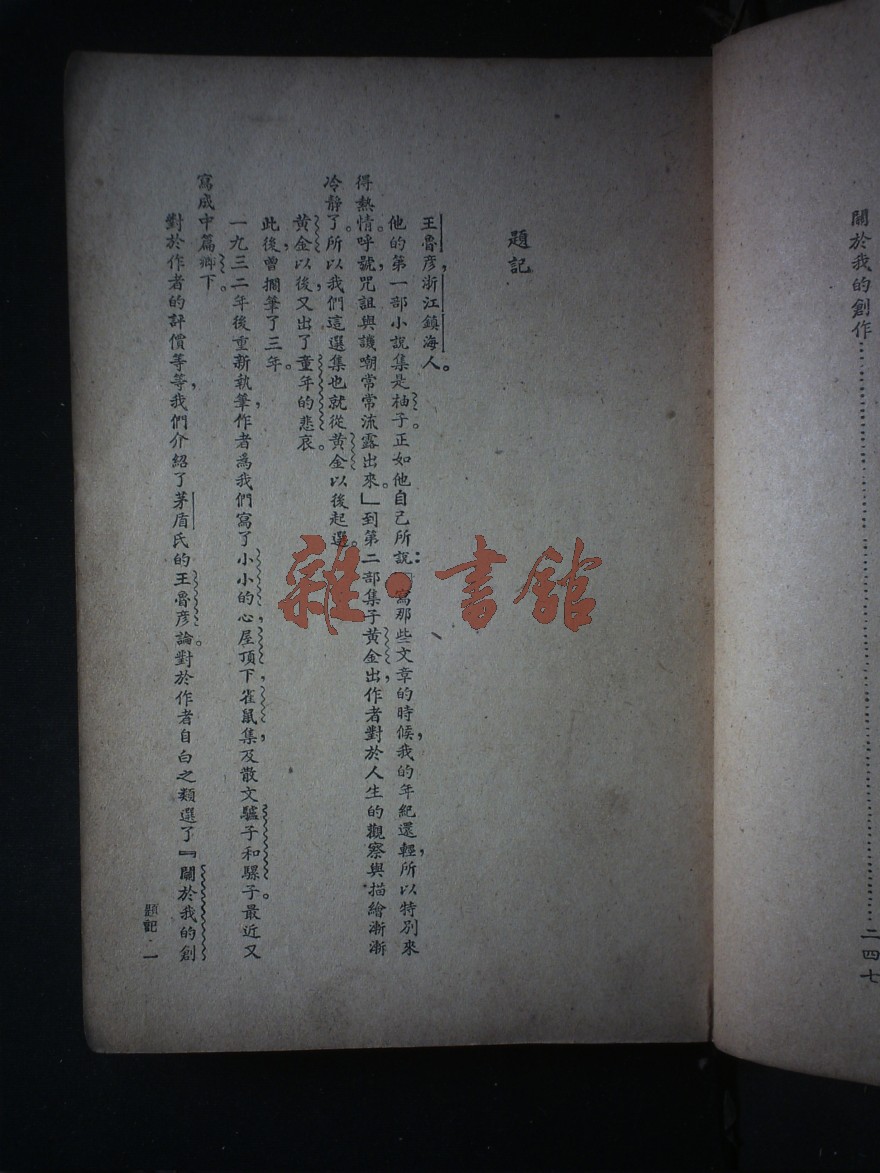 關於我的創作……………………二四七
題記
王魯彥，浙江鎮海人。
他的第一部小說集是柚子。正如他自己所說：「寫那些文章的時候，我的年紀還輕，所以特別來
得熱情。呼號，咒詛與譏嘲常常流露出來。」到第二部集子黃金出，作者對於人生的觀察與描繪漸漸
冷靜了。所以我們這選集也就從黃金以後起選。
黃金以後，又出了童年的悲哀。
此後，曾擱筆了三年。
一九三二年後重新執筆，作者爲我們寫了小小的心，屋頂下，雀鼠集，及散文驢子和騾子。最近又
寫成中篇鄉下。
對於作者的評價等等，我們介紹了茅盾氏的王魯彥論。對於作者自白之類選了『關於我的創
題記·一
雜·書館